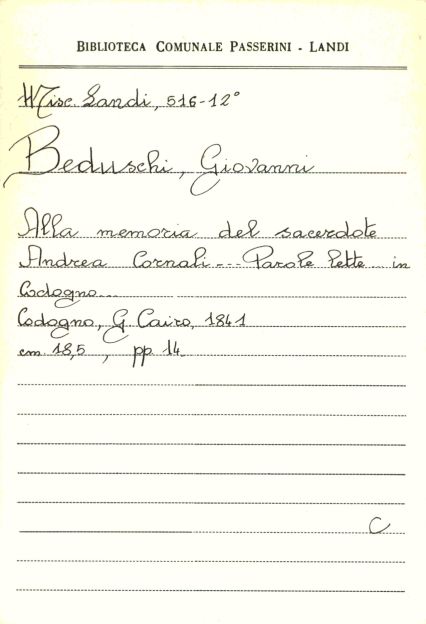 BIBLIOTECA COMUNALE PASSERINI - LANDI
Misc. Landi, 516-12°
Beduschi, Giovanni
Alla memoria del sacerdote
Andrea Cornali... Parole lette in
Codogno...
Codogno, G. Cairo, 1841
cm 18,5, pp. 14
C